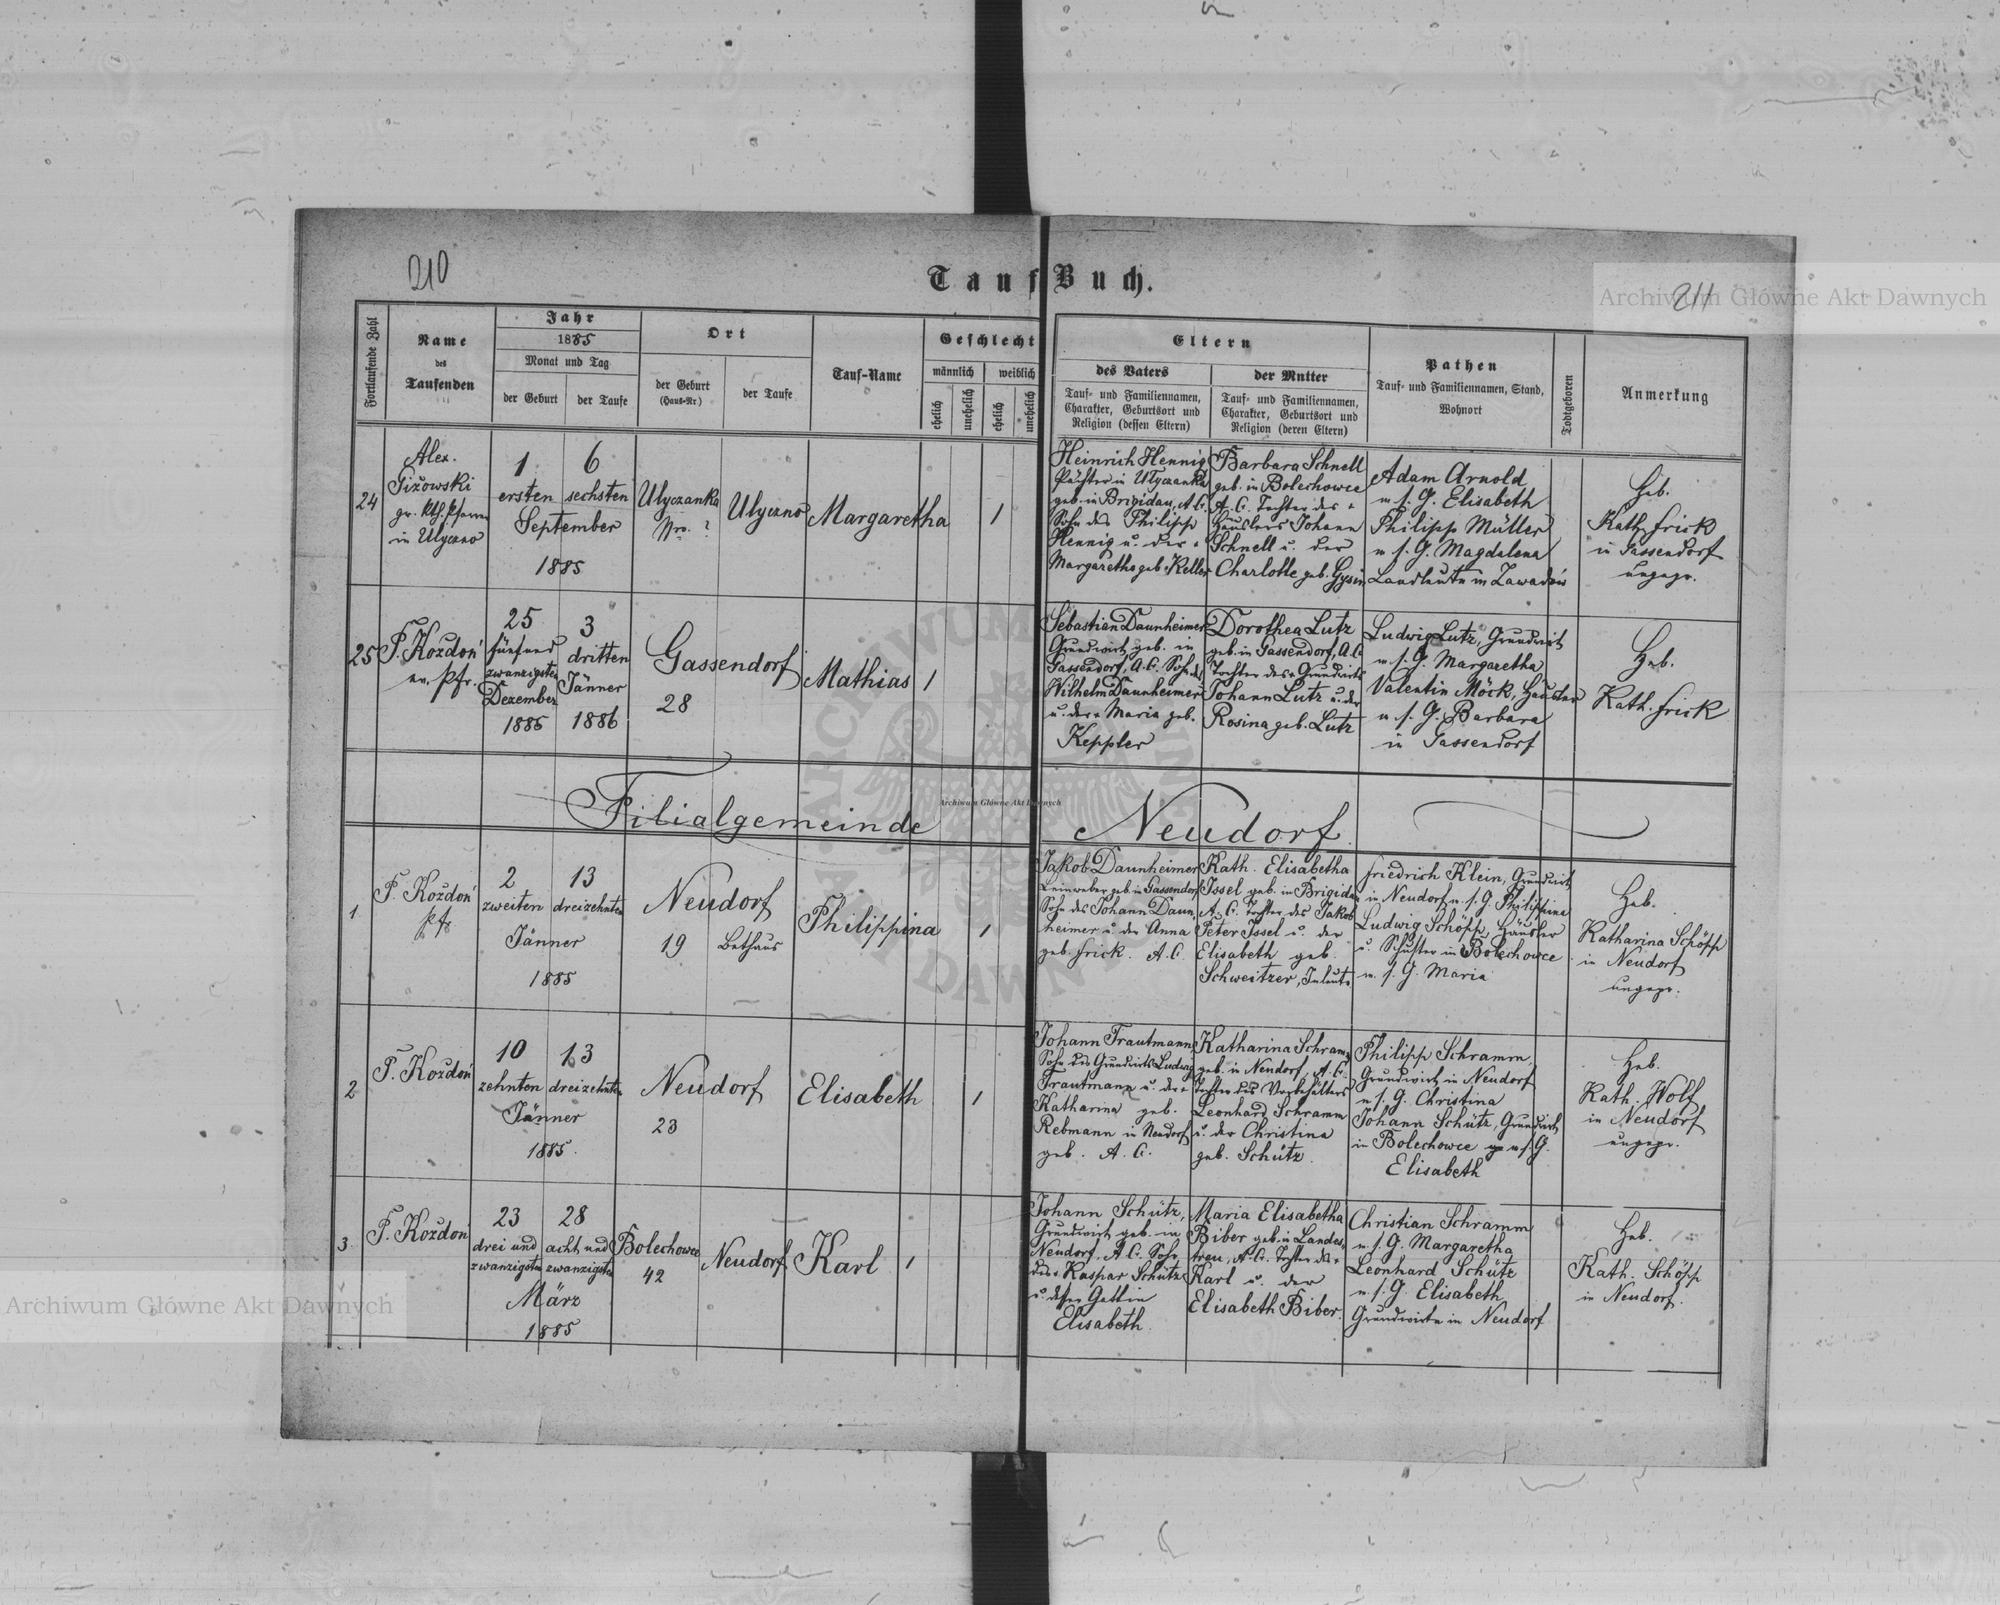 210
Tauf Buch.
211
Fortlaufende Zahl
Name
des
Taufenden
Jahr
1885
Monat und Tag
der Geburt
der Taufe
Ort
der Geburt
(Haus-Nr.)
der Taufe
Tauf-Name
Geschlecht
männlich
weiblich
ehelich
unehelich
ehelich
unehelich
Eltern
des Vaters
Tauf- und Familiennamen,
Charakter, Geburtsort und
Religion (dessen Eltern)
der Mutter
Tauf- und Familiennamen,
Charakter, Geburtsort und
Religion (deren Eltern)
Pathen
Tauf- und Familiennamen, Stand,
Wohnort
Todtgeboren
Anmerkung
24
Alex.
Gizowski
gr. kth. Pfarrer
in Ulyczno
1
ersten
6
sechsten
September
1885
Ulyczanka
Nro. ?
Ulyczno
Margaretha
1
Heinrich Hennig
Pächter in Ulyczanka
geb. in Brigidau, A. C.
Sohn des Philipp
Hennig u. der
Margaretha geb. Keller
Barbara Schnell
geb. in Bolechowce
A. C. Tochter des
Häuslers Johann
Schnell u. der
Charlotte geb. Gysin
Adam Arnold
u. s. G. Elisabeth
Philipp Müller
u. s. G. Magdalena
Landleute in Zawadów
Heb.
Kath. Frick
in Gassendorf
ungepr.
25
P. Kozdoń
ev. Pfr.
25
fünfund
zwanzigsten
Dezember
1885
3
dritten
Jänner
1886
Gassendorf
28
Mathias
1
Sebastian Daunheimer
Grundwirt, geb. in
Gassendorf, A. C. Sohn des
Wilhelm Daunheimer
u. der Maria geb.
Keppler
Dorothea Lutz
geb. in Gassendorf, A. C.
Tochter des Grundwirts
Johann Lutz u. der
Rosina geb. Lutz
Ludwig Lutz, Grundwirt
u. s. G. Margaretha
Valentin Möck, Häusler
u. s. G. Barbara
in Gassendorf
Heb.
Kath. Frick
Filialgemeinde Neudorf
1
P. Kozdoń
Pfr
2
zweiten
13
dreizehnten
Jänner
1885
Neudorf
19
Bethaus
Philippina
1
Jakob Daunheimer
Leinweber geb. in Gassendorf
Sohn des Johann Daun-
heimer u. der Anna
geb. Frick. A. C.
Kath. Elisabetha
Issel geb. in Brigidau
A. C. Tochter des Jakob
Peter Issel u. der
Elisabeth geb.
Schweitzer, Inleute
Friedrich Klein, Grundwirt
in Neudorf u. s. G. Philippina
Ludwig Schöpp, Häusler
u. Schuster in Bolechowce
u. s. G. Maria
Heb.
Katharina Schöpp
in Neudorf
ungepr.
2
P. Kozdoń
10
zehnten
13
dreizehnten
Jänner
1885.
Neudorf
23
Elisabeth
1
Johann Trautmann,
Sohn des Grundwirts Ludwig
Trautmann u. der
Katharina geb.
Rebmann in Neudorf
geb. A. C.
Katharina Schramm
geb. in Neudorf, A. C.
Tochter des Vorbehälters
Leonhard Schramm
u. der Christina
geb. Schütz.
Philipp Schramm
Grundwirth in Neudorf
u. s. G. Christina
Johann Schütz, Grundwirt
in Bolechowce u. s. G.
Elisabeth
Heb.
Kath. Wolf
in Neudorf
ungepr.
3
P. Kozdoń
23
drei und
zwanzigsten
28
acht und
zwanzigsten
März
1885
Bolechowce
42
Neudorf
Karl
1
Johann Schütz,
Grundwirt geb. in
Neudorf, A. C. Sohn
des Kaspar Schütz
u. dessen Gattin
Elisabeth.
Maria Elisabetha
Biber geb. in Landes-
treu, A. C. Tochter des
Karl u. der
Elisabeth Biber.
Christian Schramm
u. s. G. Margaretha
Leonhard Schütz
u. s. G. Elisabeth
Grundwirte in Neudorf
Heb.
Kath. Schöpp
in Neudorf.
Archiwum Główne Akt Dawnych
Archiwum Główne Akt Dawnych
Archiwum Główne Akt Dawnych